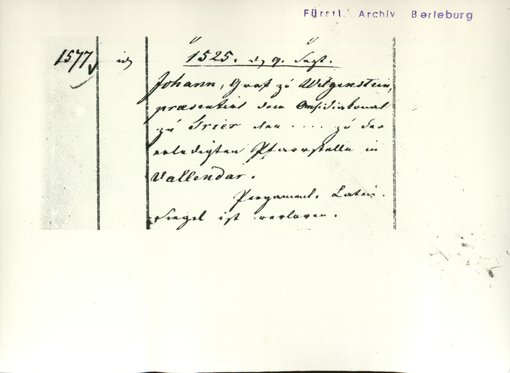 Fürstl. Archiv Berleburg
1577 1525. 9. Sept.
Johann, Graf zu Witgenstein,
praesentirt dem
zu Trier den .... zu der
erledigten Pfarrstelle in
Vallendar.
Pergament. Latein.
Siegel ist verloren.